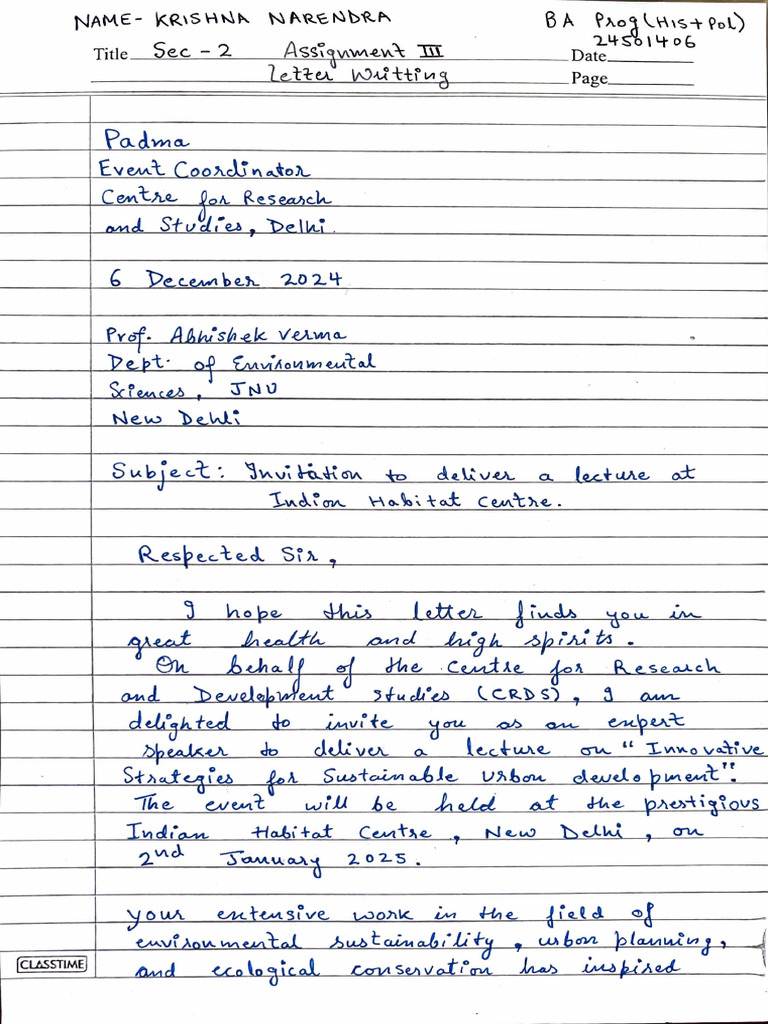 NAME- KRISHNA NARENDRA BA Prog (HIS + POL)
24501406
Title Sec - 2 Assignment III Date
Letter Writting Page
Padma
Event Coordinator
Centre for Research
and Studies, Delhi.
6 December 2024
Prof. Abhishek Verma
Dept. of Environmental
Sciences, JNU
New Dehli
Subject: Invitation to deliver a lecture at
Indian Habitat Centre.
Respected Sir,
I hope this letter finds you in
great health and high spirits.
On behalf of the Centre for Research
and Development Studies (CRDS), I am
delighted to invite you as an expert
speaker to deliver a lecture on "Innovative
Strategies for Sustainable Urban development".
The event will be held at the prestigious
Indian Habitat Centre, New Delhi, on
2nd January 2025.
Your extensive work in the field of
environmental sustainability, urban planning,
and ecological conservation has inspired
CLASSTIME